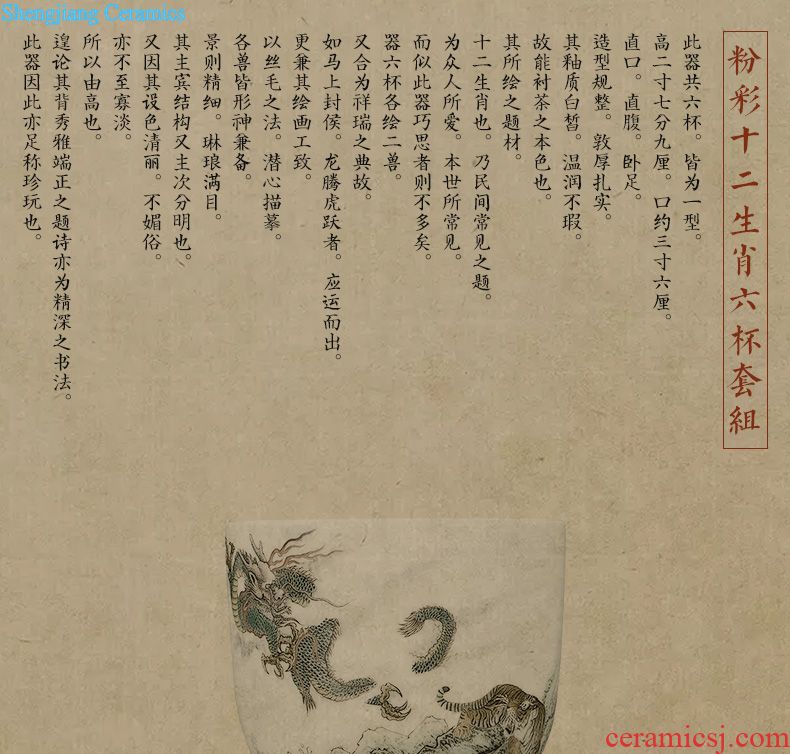 Shengjiang Ceramics
粉彩十二生肖六杯套組
此器共六杯。皆为一型。
高二寸七分九厘。口约三寸六厘。
直口。直腹。卧足。
造型规整。敦厚扎实。
其釉质白皙。温润不瑕。
故能衬茶之本色也。
其所绘之题材。
十二生肖也。乃民间常见之题。
为众人所爱。本世所常见。
而似此器巧思者则不多矣。
器六杯各绘二兽。
又合为祥瑞之典故。
如马上封侯。龙腾虎跃者。应运而出。
更兼其绘画工致。
以丝毛之法。潜心描摹。
各兽皆形神兼备。
景则精细。琳琅满目。
其主宾结构又主次分明也。
又因其设色清丽。不媚俗。
亦不至寡淡。
所以由高也。
遑论其背秀雅端正之题诗亦为精深之书法。
此器因此亦足称珍玩也。
ceramicsj.com